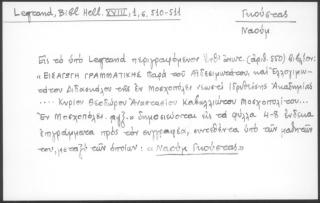 Legrand, Bibl. Hell. XVIII, 1, 6, 510-511
Γκούστας
Ναούμ
Εἰς τὸ ὑπὸ Legrand περιγραφόμενον (ἀριθ. 550) βιβλίον:
« ΕΙΣΑΓΩΓΗ ΓΡΑΜΜΑΤΙΚΗΣ παρὰ τοῦ Αἰδεσιμωτάτου, καὶ Ἐλλογιμω-
τάτου Διδασκάλου τῆς ἐν Μοσχοπόλει Ἀκαδημίας
.... Κυρίου Θεοδώρου Ἀναστασίου Καβαλλιώτου Μοσχοπολίτου...
Ἐν Μοσχοπόλει. » δημοσιεύονται εἰς τὰ φύλλα 4-8 ἕνδεκα
ἐπιγράμματα πρὸς τὸν συγγραφέα, συντεθέντα ὑπὸ τῶν μαθητῶν
του, μεταξὺ τῶν ὁποίων: « Ναοὺμ Γκούστας »